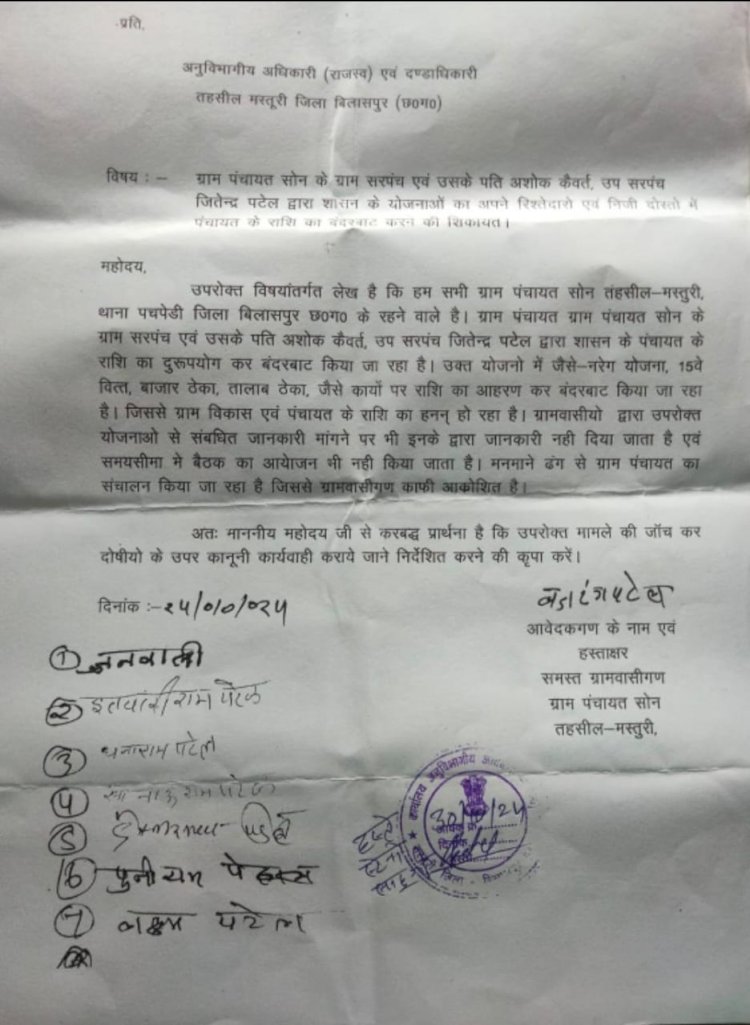 प्रति,
अनुविभागीय अधिकारी (राजस्व) एवं दण्डाधिकारी
तहसील मस्तूरी जिला बिलासपुर (छ0ग0)
विषय : – ग्राम पंचायत सोन के ग्राम सरपंच एवं उसके पति अशोक कैवर्त, उप सरपंच
जितेन्द्र पटेल द्वारा शासन के योजनाओं का अपने रिश्तेदारो एवं निजी दोस्तो में
पंचायत के राशि का बंदरबाट करने की शिकायत।
महोदय,
उपरोक्त विषयांतर्गत लेख है कि हम सभी ग्राम पंचायत सोन तहसील–मस्तुरी,
थाना पचपेडी जिला बिलासपुर छ0ग0 के रहने वाले है। ग्राम पंचायत ग्राम पंचायत सोन के
ग्राम सरपंच एवं उसके पति अशोक कैवर्त, उप सरपंच जितेन्द्र पटेल द्वारा शासन के पंचायत के
राशि का दुरूपयोग कर बंदरबाट किया जा रहा है। उक्त योजनो में जैसे–नरेग योजना, 15वे
वित्त, बाजार ठेका, तालाब ठेका, जैसे कार्यो पर राशि का आहरण कर बंदरबाट किया जा रहा
है। जिससे ग्राम विकास एवं पंचायत के राशि का हनन् हो रहा है। ग्रामवासीयो द्वारा उपरोक्त
योजनाओ से संबधित जानकारी मांगने पर भी इनके द्वारा जानकारी नही दिया जाता है एवं
समयसीमा मे बैठक का आयेाजन भी नही किया जाता है। मनमाने ढंग से ग्राम पंचायत का
संचालन किया जा रहा है जिससे ग्रामवासीगण काफी आकोशित है।
अतः माननीय महोदय जी से करबद्ध प्रार्थना है कि उपरोक्त मामले की जॉच कर
दोषीयो के उपर कानूनी कार्यवाही कराये जाने निर्देशित करने की कृपा करें।
दिनांक :–
पटेल
आवेदकगण के नाम एवं
हस्ताक्षर
समस्त ग्रामवासीगण
ग्राम पंचायत सोन
तहसील–मस्तुरी,
1
2 इतवारी राम पटेल
3 धनाराम पटेल
4
5
6 पुनीराम
7 पटेल
कार्यालय अनुविभागीय
30/10/24
दिनांक
जिला